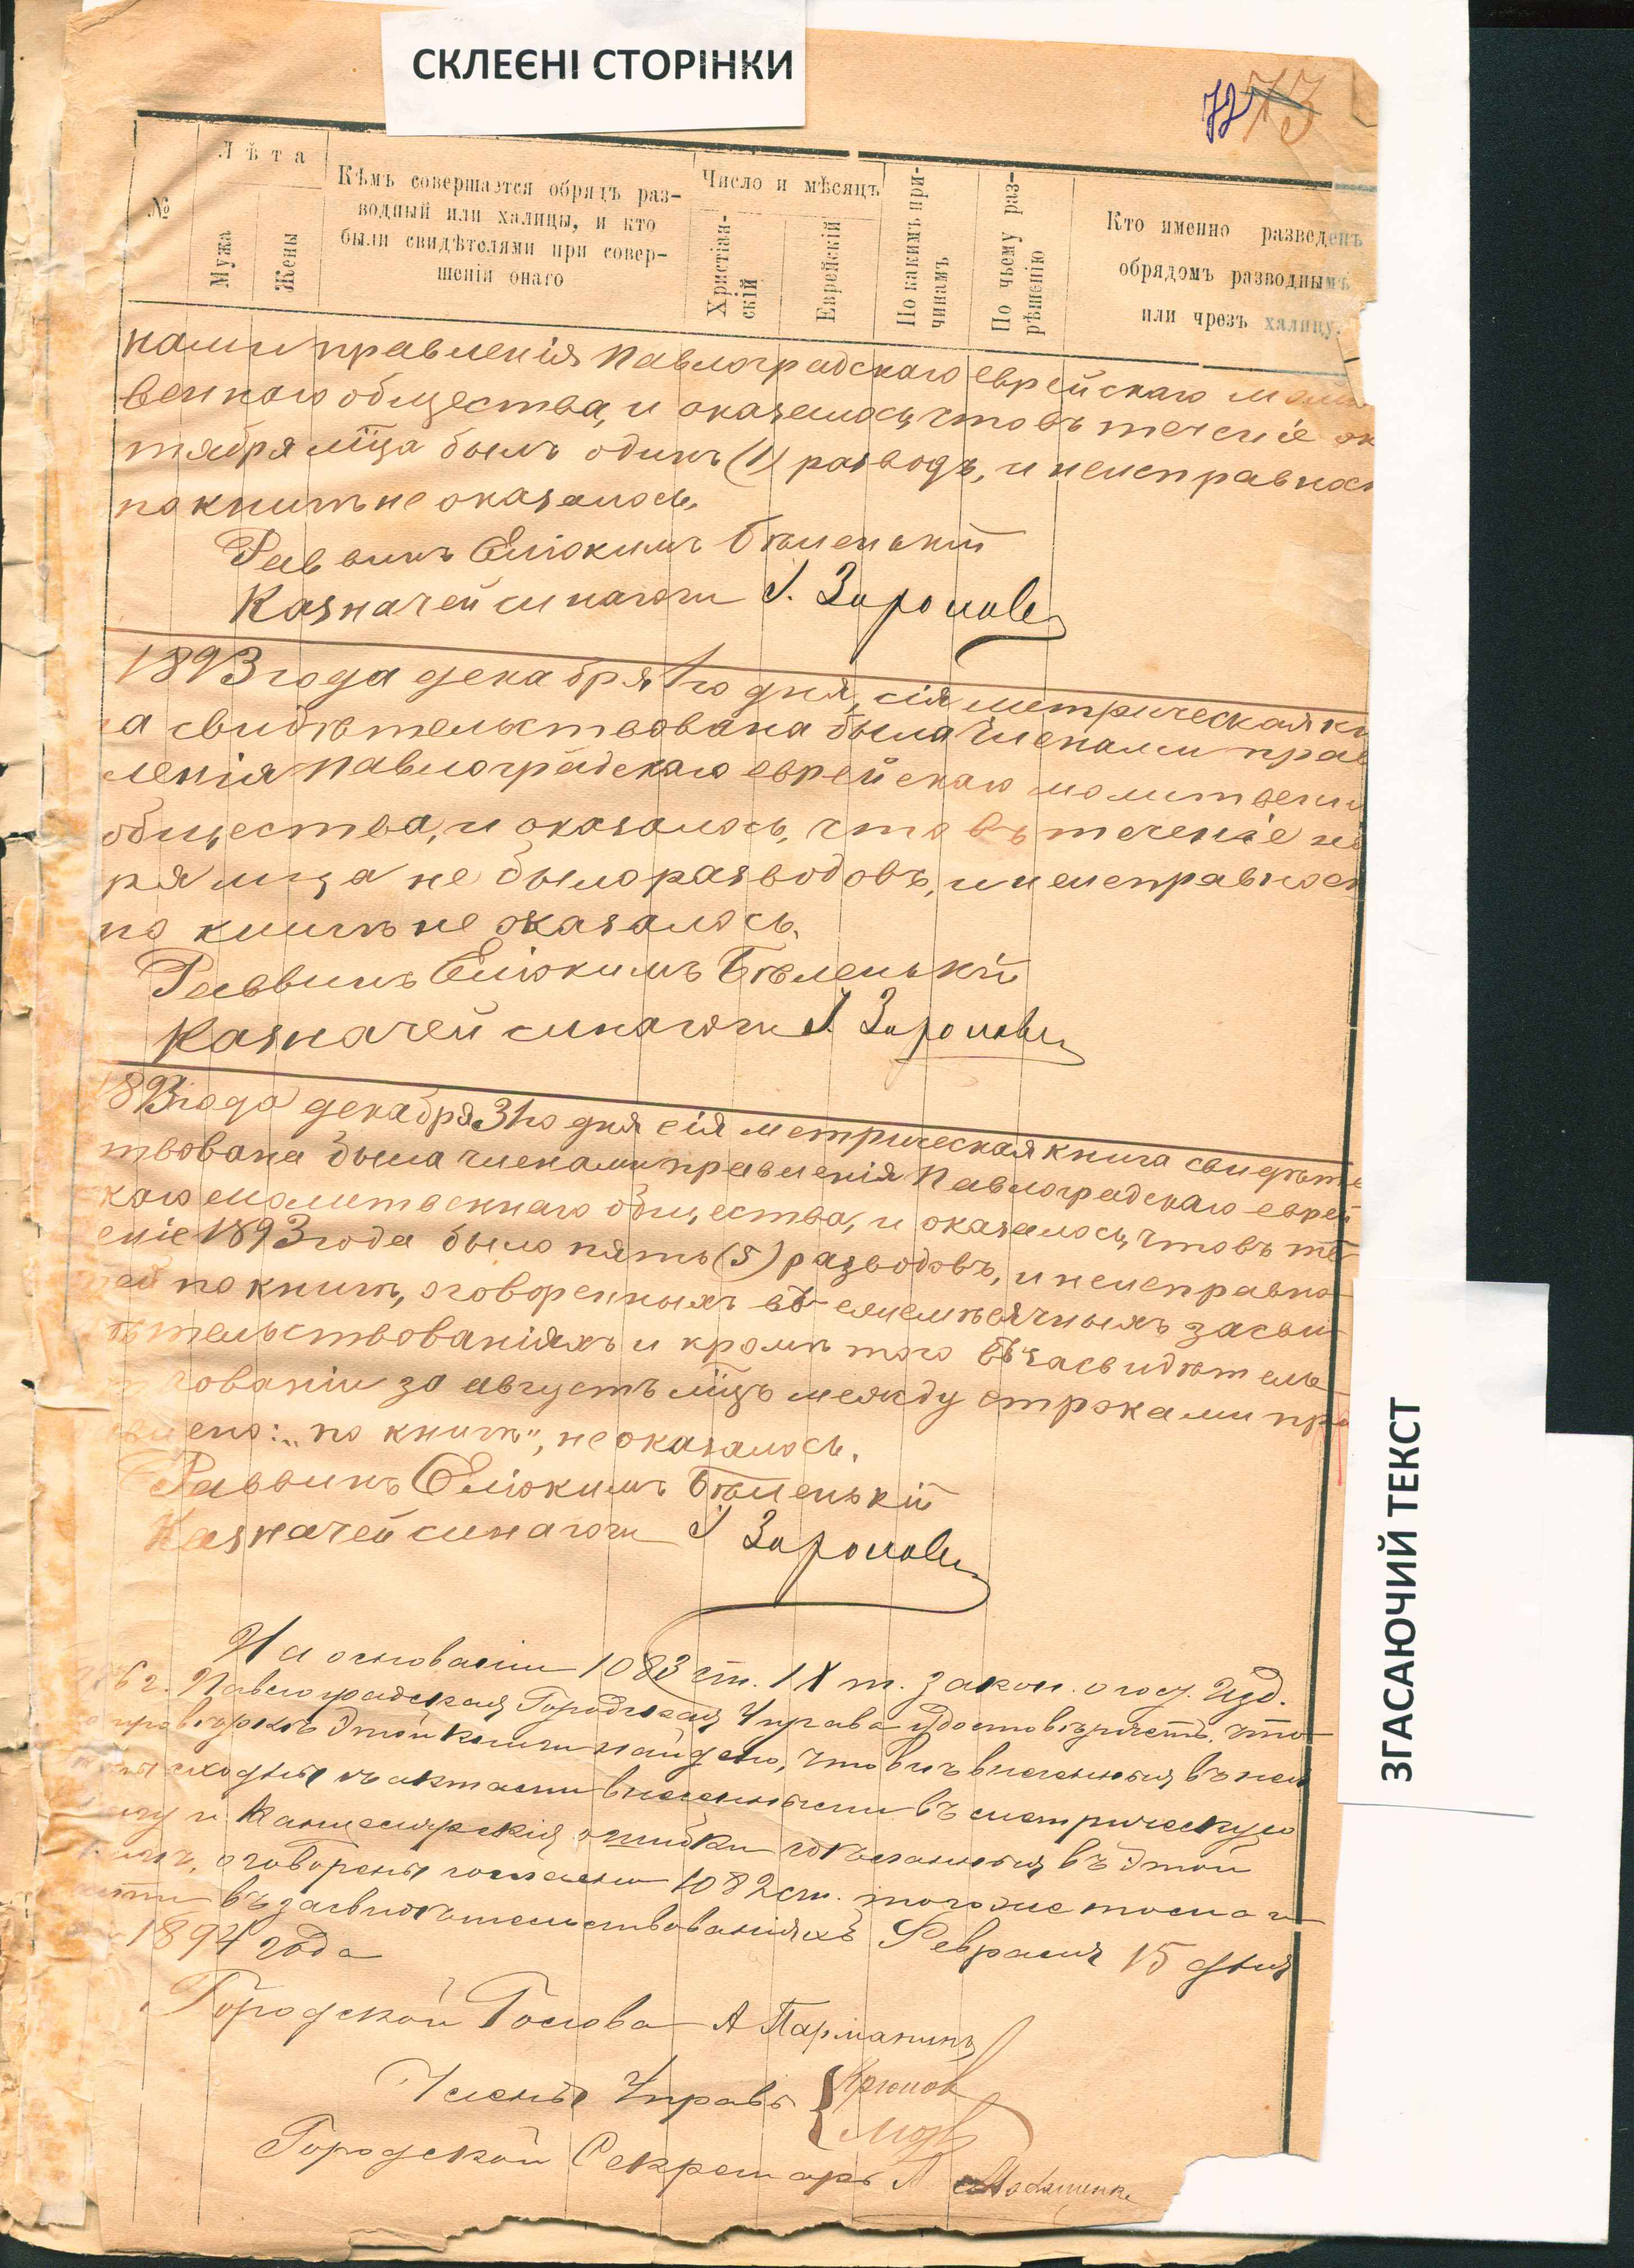 СКЛЕЄНІ СТОРІНКИ
72 73
№
Лѣта
Мужа
Жены
Кѣмъ совершается обрядъ раз-
водный или халицы, и кто
были свидѣтелями при совер-
шеніи онаго
Число и мѣсяцъ
Христіан-
скій
Еврейскій
По какимъ при-
чинамъ
По чьему раз-
рѣшенію
Кто именно разведенъ
обрядомъ разводнымъ
или чрезъ халицу.
нами правленія Павлоградскаго еврейскаго молит
веннаго общества, и оказалось, что въ теченіе ок
тября мѣца былъ одинъ (1) разводъ, и неисправнос
по книгѣ не оказалось.
Раввинъ Еліокимъ Бѣленькій
Казначей синагоги
1893 года декабря 1го дня, сія метрическая кн
а свидѣтельствована была членами прав
ленія Павлоградскаго еврейскаго молитвенн
общества, и оказалось, что въ теченіе но
ря мѣца не было разводовъ, и неисправност
по книгѣ не оказалось.
Раввинъ Еліокимъ Бѣленькій
Казначей синагоги
1893 года декабря 31го дня сія метрическая книга свидѣте
твована была членами правленія Павлоградскаго еврей
каго молитвеннаго общества, и оказалось, что въ те
еніе 1893 года было пять (5) разводовъ, и неисправно
ей по книгѣ, оговоренныхъ въ ежемѣсячныхъ засви
ѣтельствованіяхъ и кромѣ того въ засвидѣтель
твованіи за августъ мѣцъ между строками пр
ено: „по книгѣ", не оказалось.
Раввинъ Еліокимъ Бѣленькій
Казначей синагоги
На основаніи 1083 ст. IX т. закон. о сост. изд.
6 г. Павлоградская Городская Управа удостовѣряетъ, что
провѣркѣ этой книги найдено, что внесенныя въ ней
сходны съ актами внесенными въ метрическую
и Канцелярскія ошибки сдѣланныя въ этой
оговорены согласно 1082 ст. того же тома и
въ засвидѣтельствованіяхъ Февраля 15 дня
1894 года
Городской Голова А Парманинъ
Члены Управы
Городской Секретарь
ЗГАСАЮЧИЙ ТЕКСТ